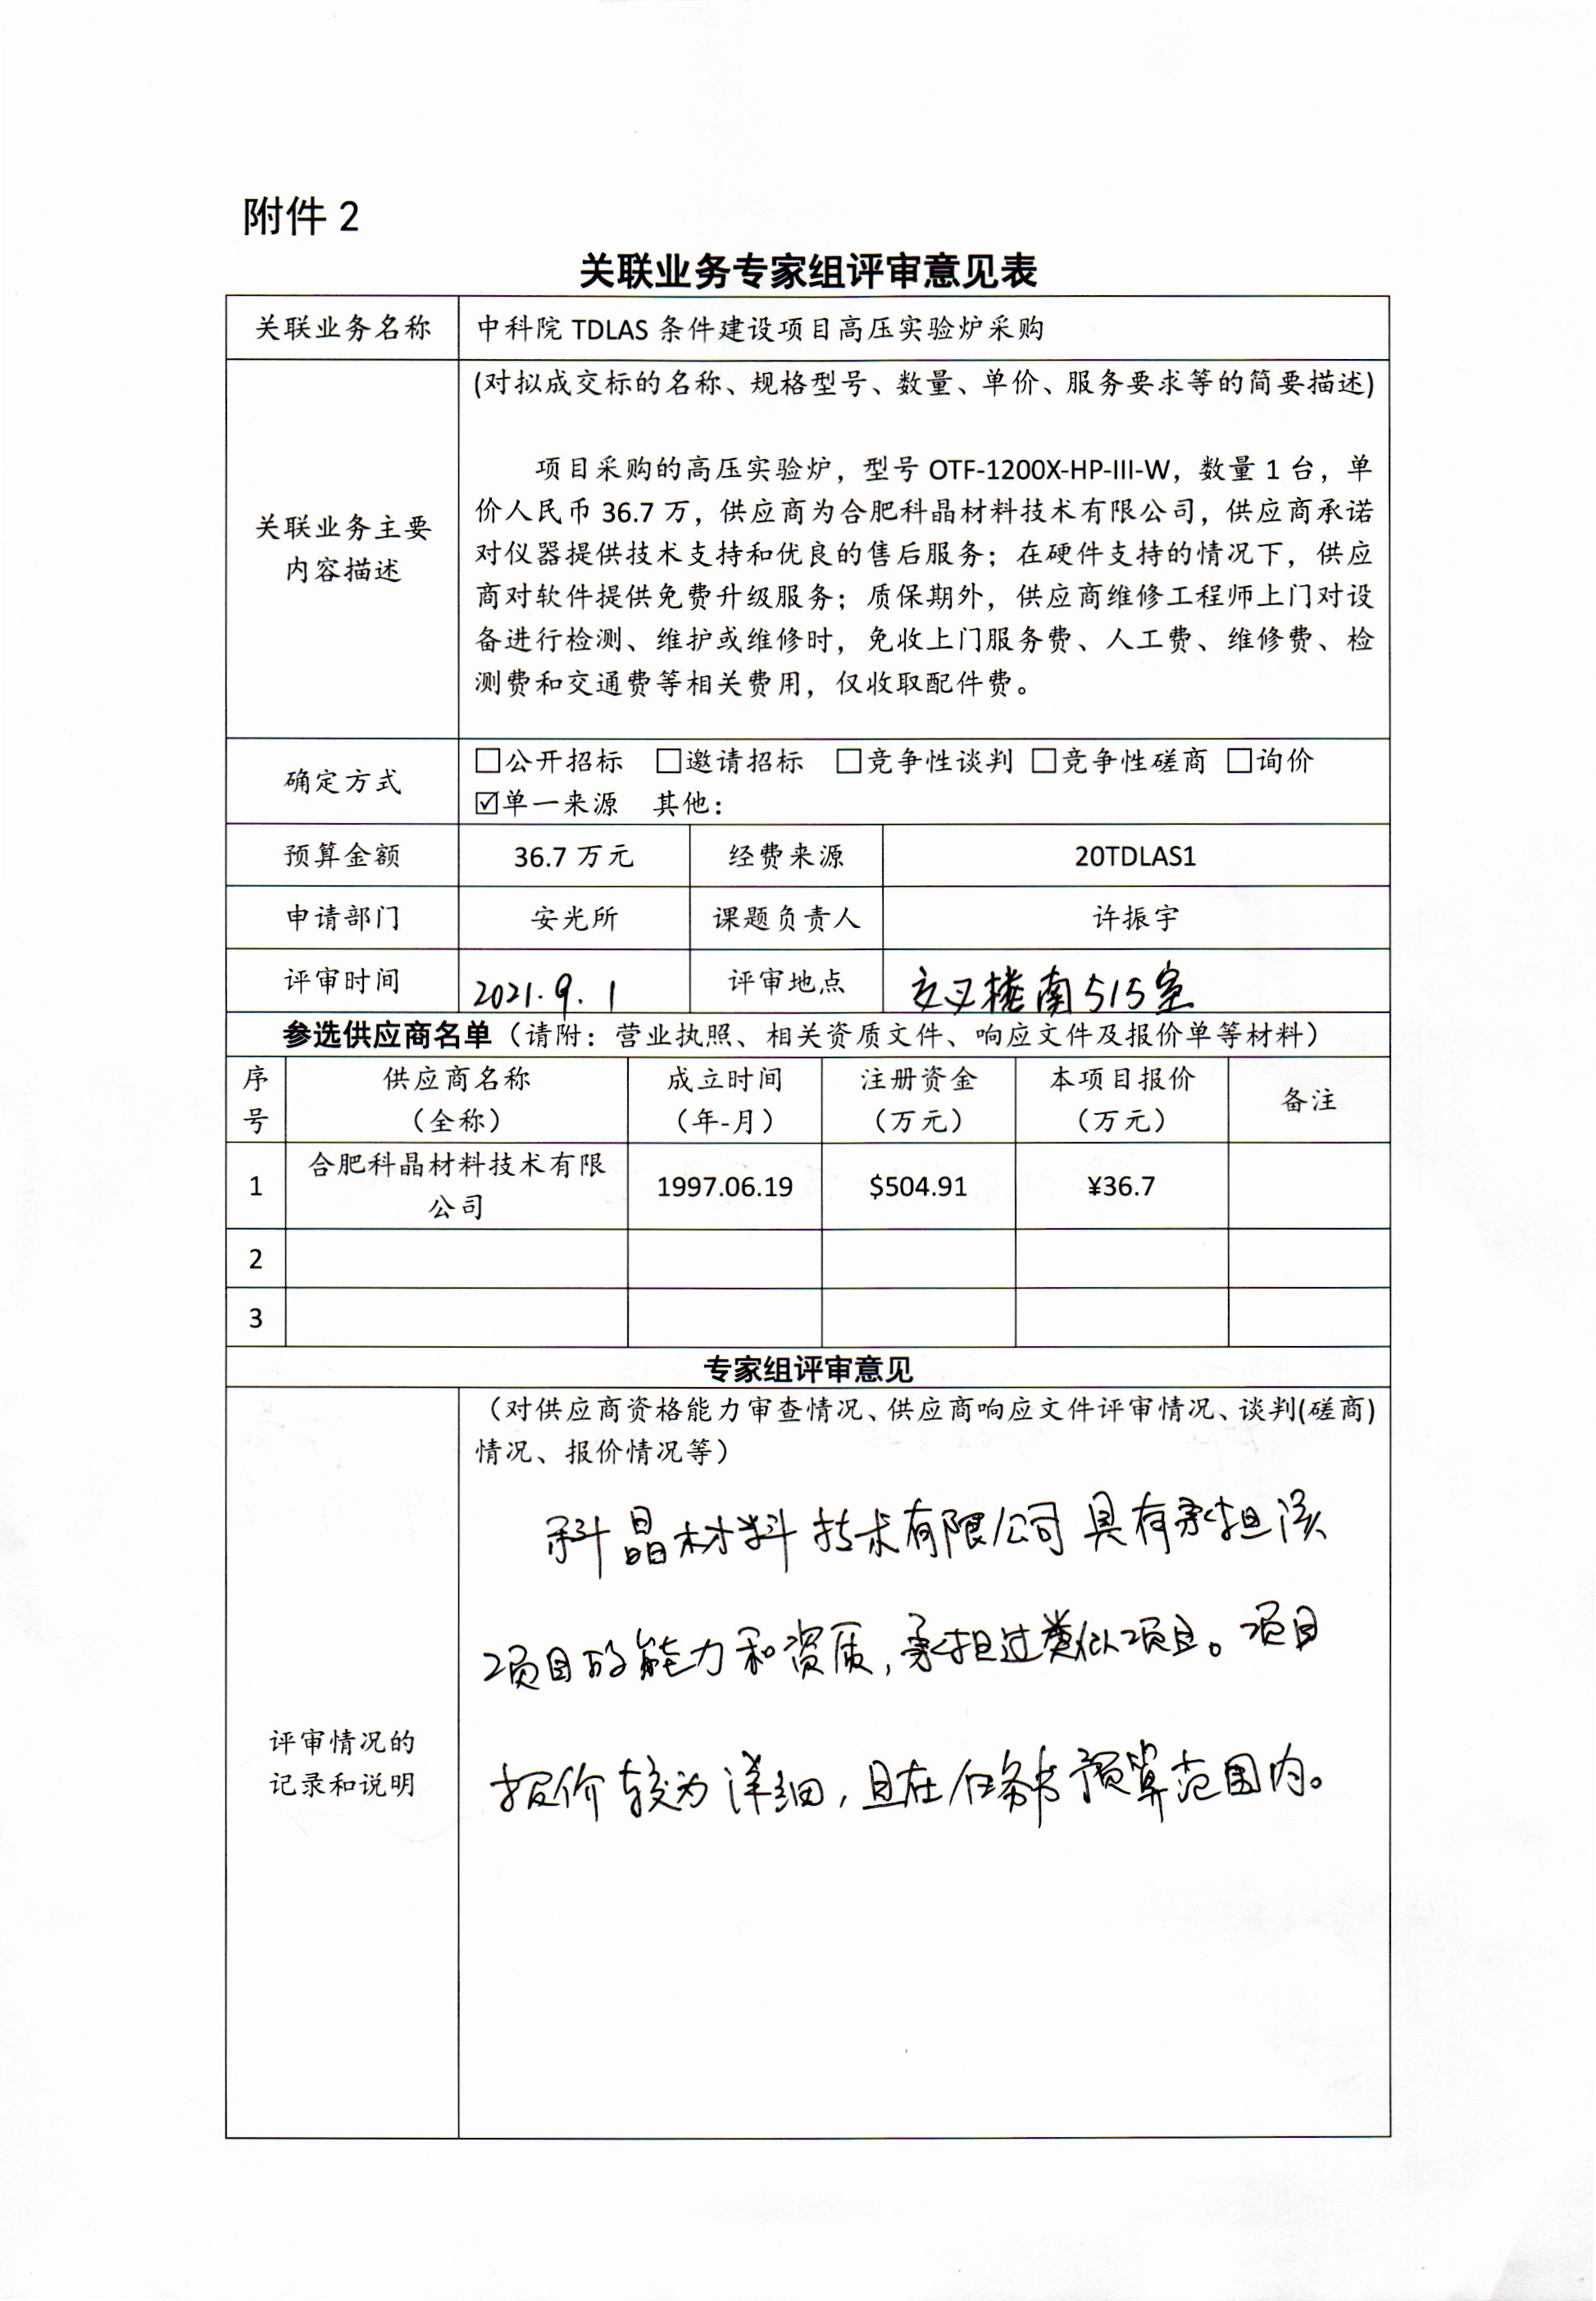 附件 2
关联业务专家组评审意见表
关联业务名称 中科院 TDLAS 条件建设项目高压实验炉采购
(对拟成交标的名称、规格型号、数量、单价、服务要求等的简要描述)
关联业务主要
内容描述
项目采购的高压实验炉，型号 OTF-1200X-HP-III-W，数量 1 台，单
价人民币 36.7 万，供应商为合肥科晶材料技术有限公司，供应商承诺
对仪器提供技术支持和优良的售后服务；在硬件支持的情况下，供应
商对软件提供免费升级服务；质保期外，供应商维修工程师上门对设
备进行检测、维护或维修时，免收上门服务费、人工费、维修费、检
测费和交通费等相关费用，仅收取配件费。
确定方式
☐公开招标 ☐邀请招标 ☐竞争性谈判 ☐竞争性磋商 ☐询价
☑单一来源 其他：
预算金额 36.7 万元 经费来源 20TDLAS1
申请部门 安光所 课题负责人 许振宇
评审时间 2021.9.1 评审地点 交叉楼南515室
参选供应商名单（请附：营业执照、相关资质文件、响应文件及报价单等材料）
序
号
供应商名称
（全称）
成立时间
（年-月）
注册资金
（万元）
本项目报价
（万元）
备注
1
合肥科晶材料技术有限
公司
1997.06.19 $504.91 ¥36.7
2
3
专家组评审意见
（对供应商资格能力审查情况、供应商响应文件评审情况、谈判(磋商)
情况、报价情况等）
评审情况的
记录和说明
科晶材料技术有限公司具有承担该
项目的能力和资质，承担过类似项目。项目
报价较为详细，且在任务书预算范围内。